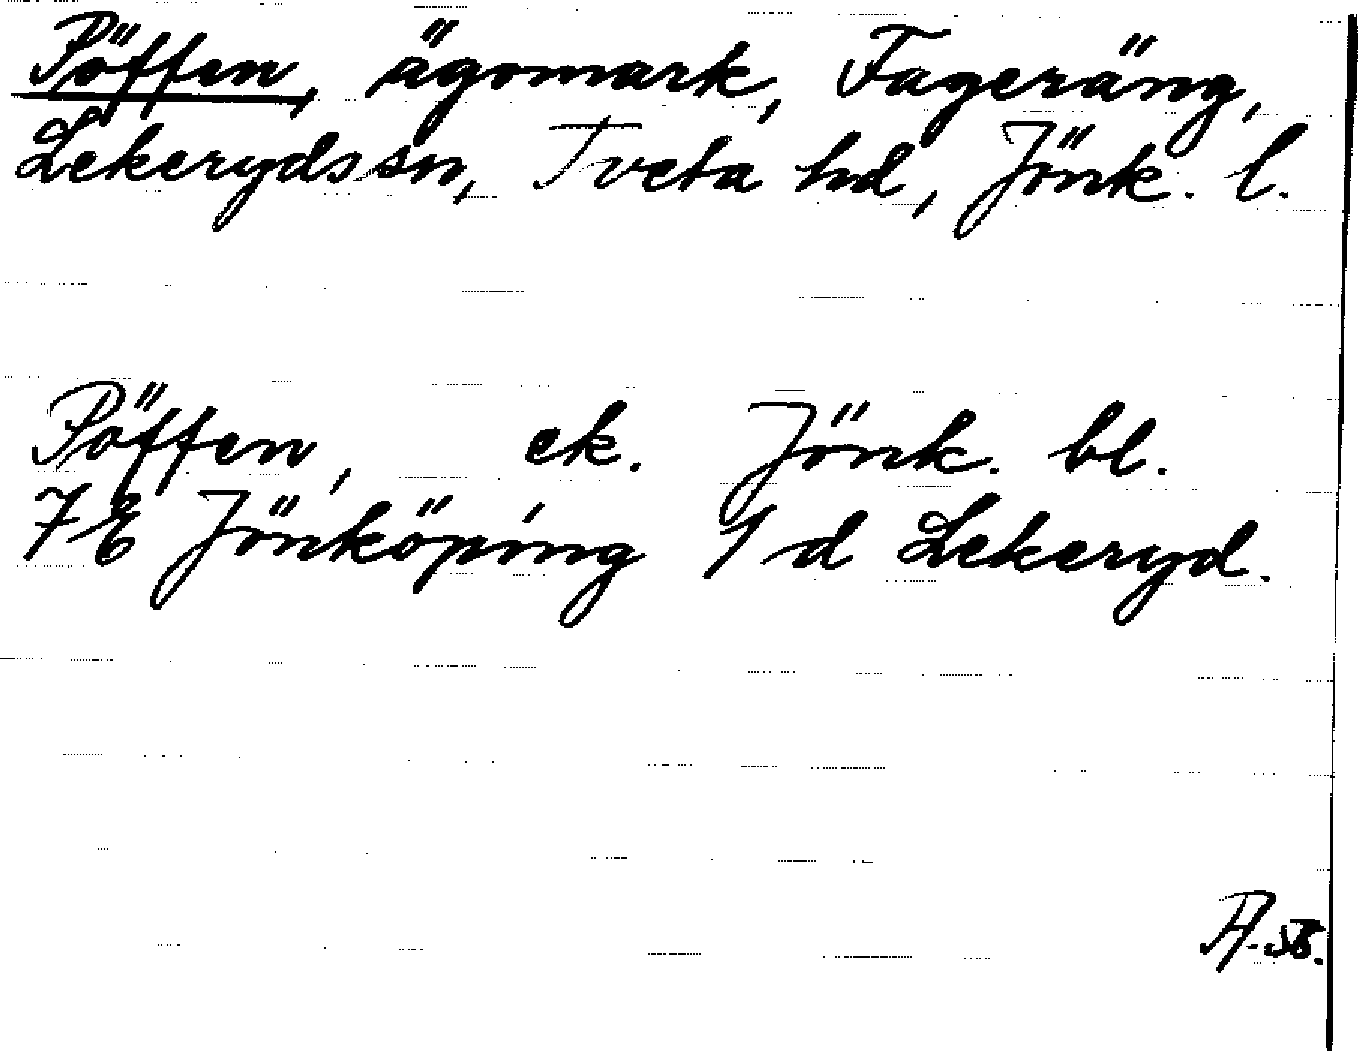 Pöffen, ägomark, Fageräng,
Lekeryds sn, Tveta hd, Jönk. l.
Pöffen, ek. Jönk. bl.
7E Jönköping 1d Lekeryd.